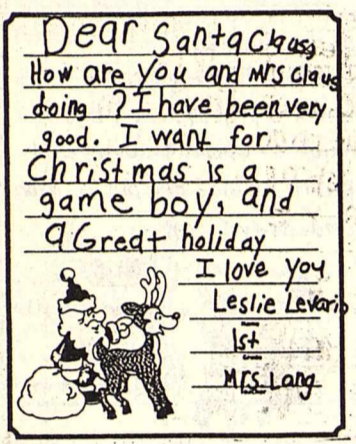 Dear Santa Claus,
How are you and Mrs claus
doing ? I have been very
good. I want for
Christmas is a
game boy, and
a Great holiday
I love you
Leslie Levario
Name
1st
Grade
Mrs Lang
Teacher